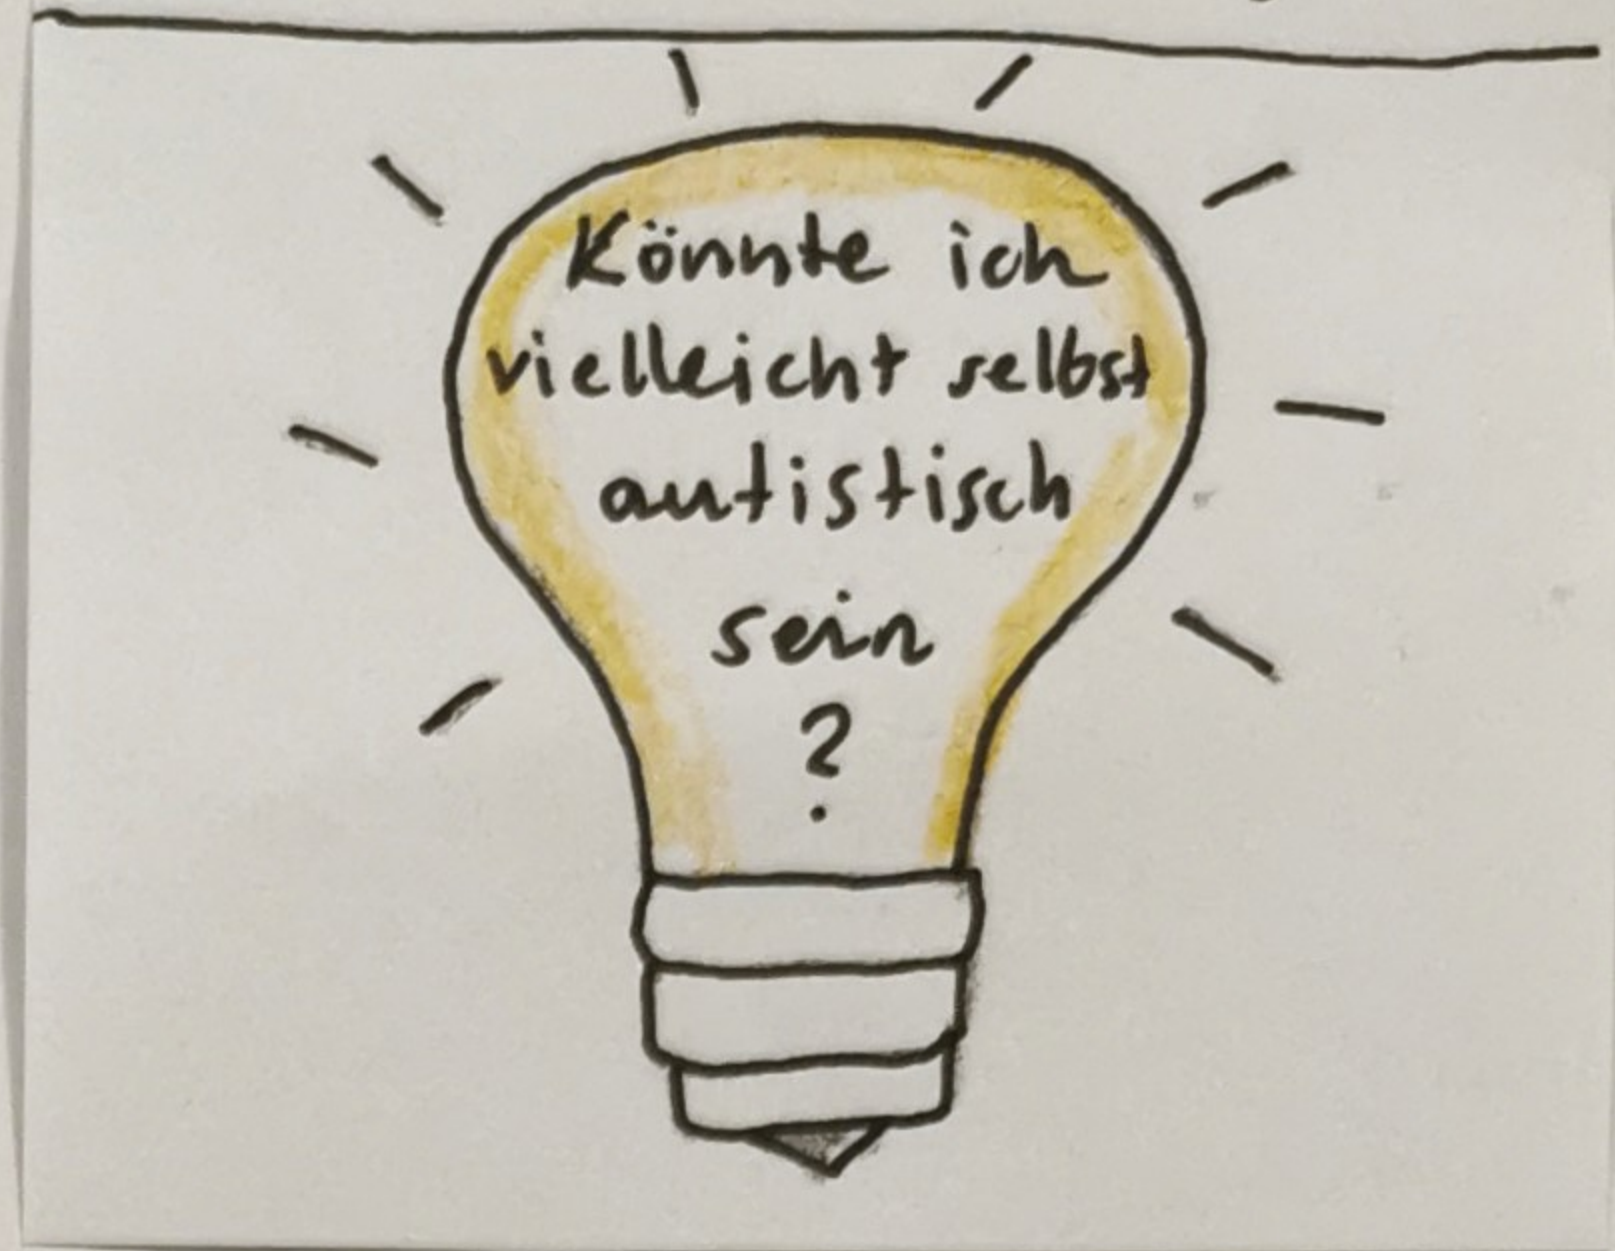 Könnte ich
vielleicht selbst
autistisch
sein
?